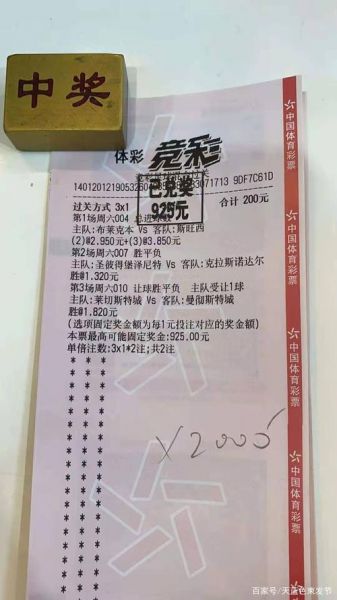 中奖
体彩 竞彩
已兑奖
925元
过关方式 3x1 合计 200元
第1场周六004 总进球数
主队:布莱克本 Vs 客队:斯旺西
(2)@2.950元+(3)@3.850元
第2场周六007 胜平负
主队:圣彼得堡泽尼特 Vs 客队:克拉斯诺达尔
胜@1.320元
第3场周六010 让球胜平负 主队受让1球
主队:莱切斯特城 Vs 客队:曼彻斯特城
胜@1.820元
(选项固定奖金额为每1元投注对应的奖金额)
本票最高可能固定奖金:925.00元
单倍注数:3x1*2注;共2注
中国体育彩票
中国体育彩票
中国体育彩票
百家号/天蓝色束发节